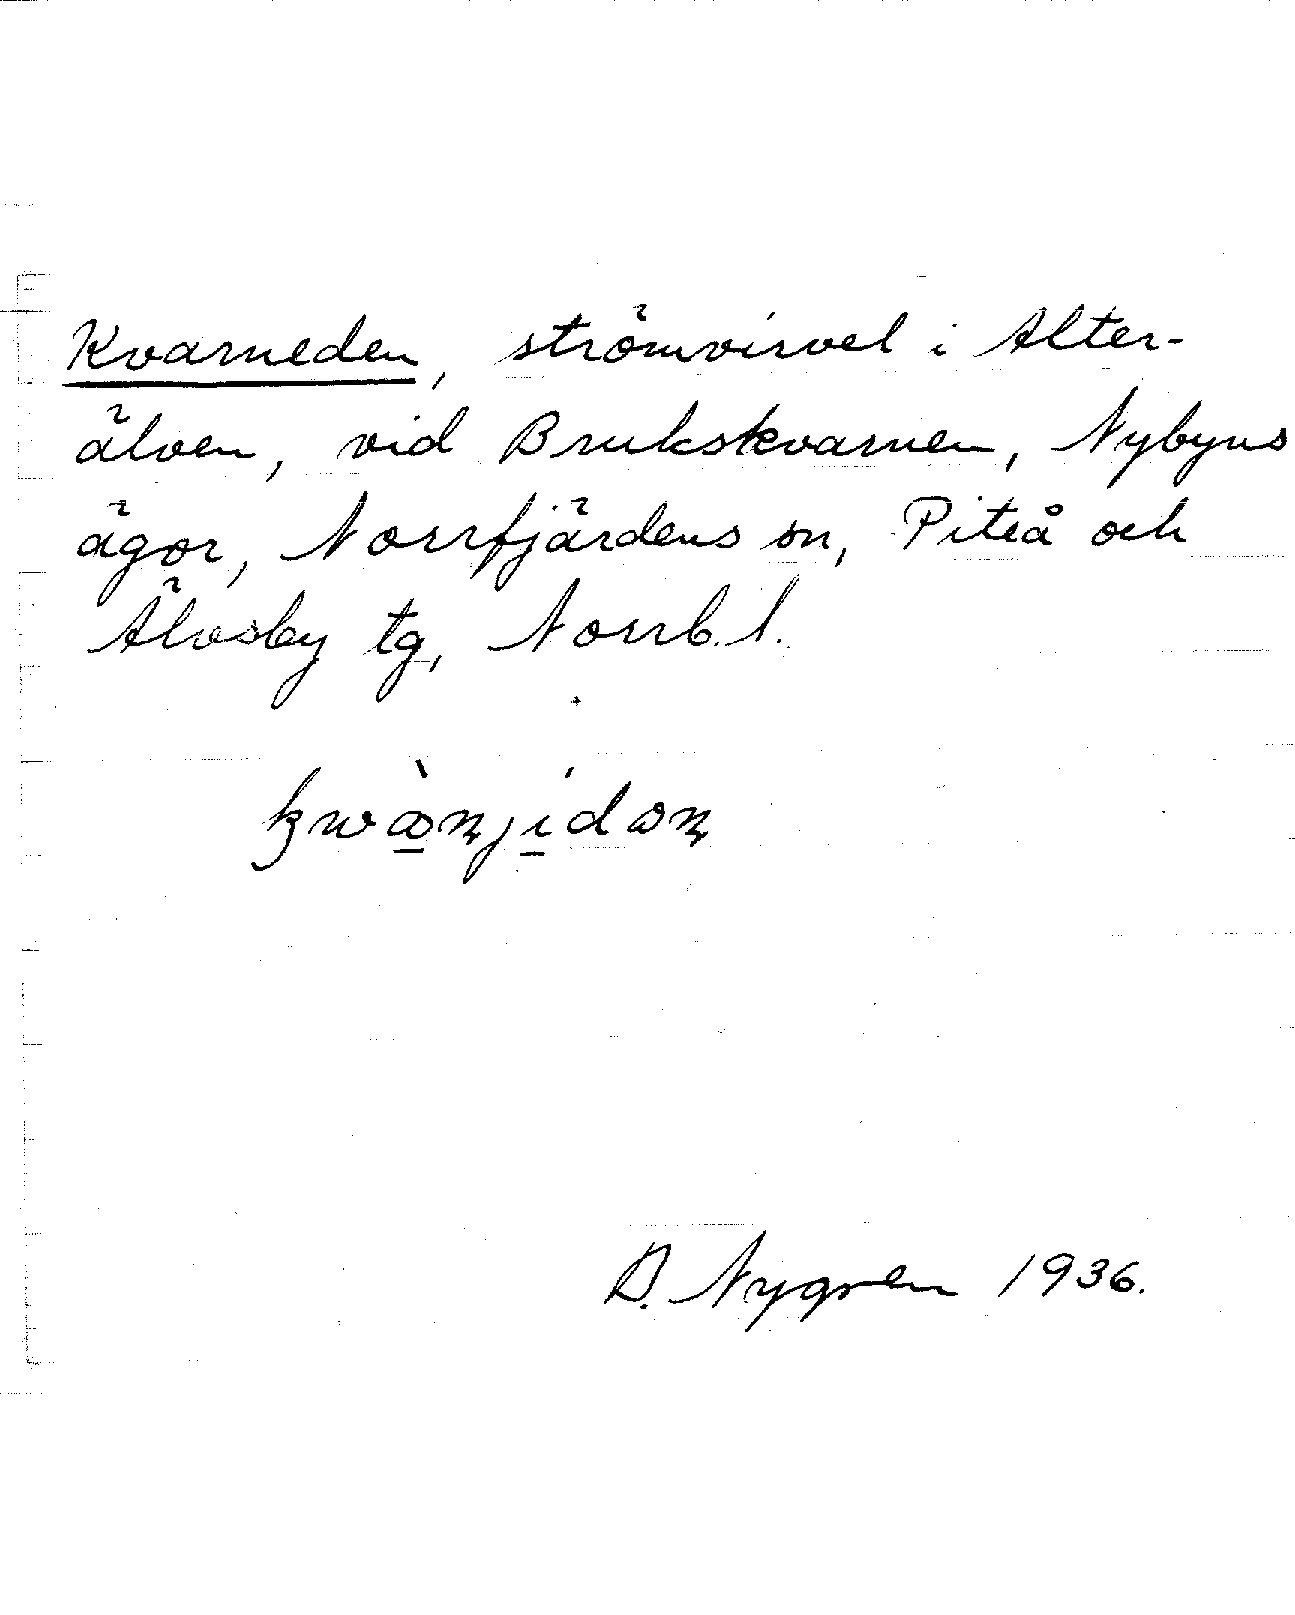 Kvarneden, strömvirvel i Alter-
älven, vid Brukskvarnen, Nybyns
ägor, Norrfjärdens sn, Piteå och
Älvsby tg, Norrb. l.
Nygren 1936.